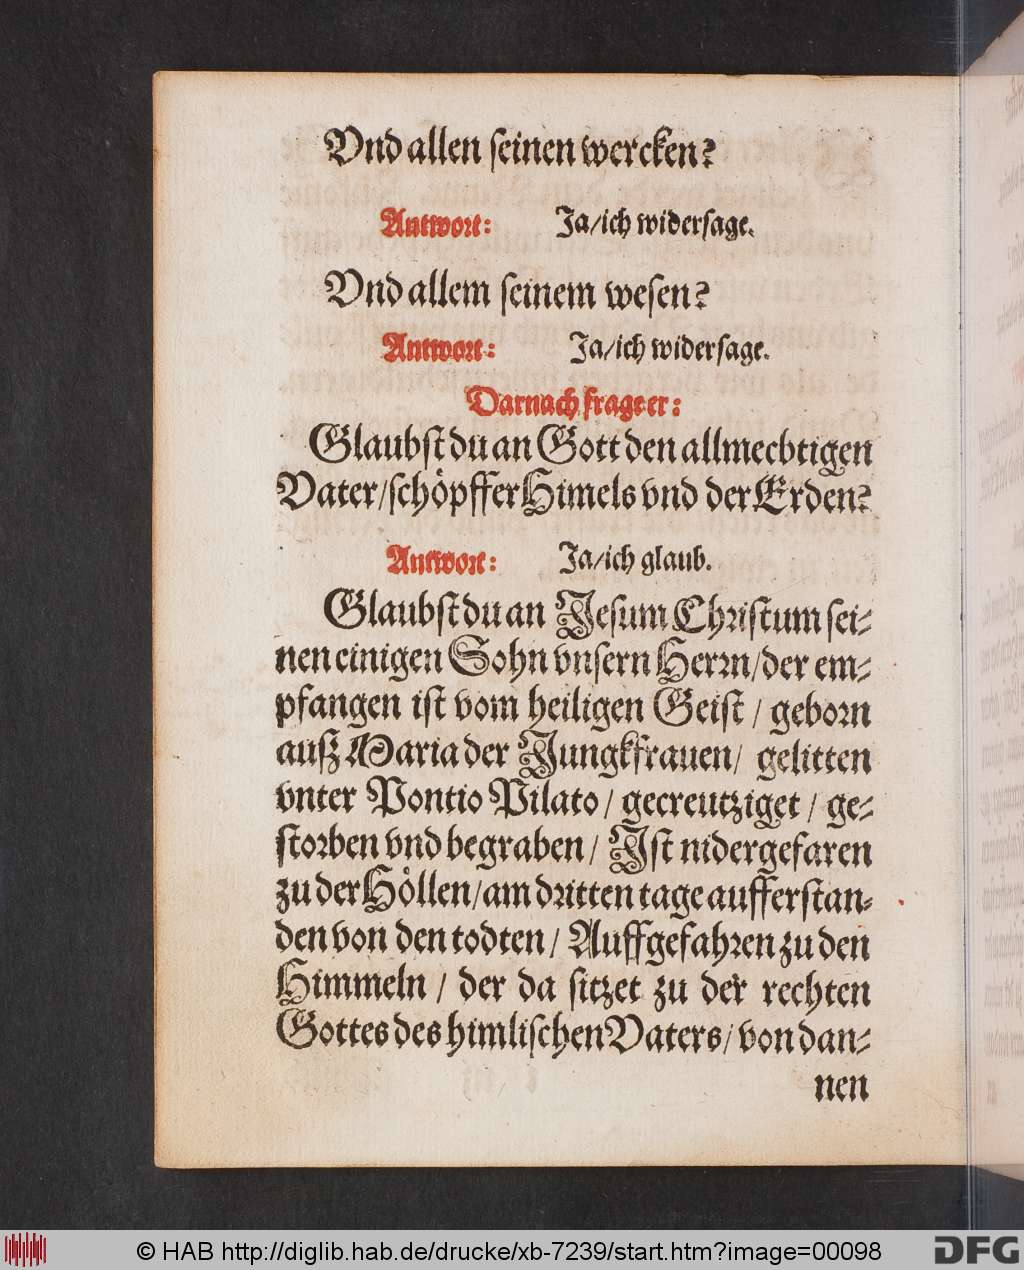 Vnd allen ſeinen wercken?
Antwort: Ja/ich widerſage.
Vnd allem ſeinem weſen?
Antwort: Ja/ich widerſage.
Darnach frage er:
Glaubſt du an Gott den allmechtigen
Vater/ſchöpffer Himels vnd der Erden?
Antwort: Ja/ich glaub.
Glaubſt du an Jeſum Chriſtum ſei-
nen einigen Sohn vnſern Herrn/der em-
pfangen iſt vom heiligen Geiſt / geborn
auß Maria der Jungkfrauen/ gelitten
vnter Pontio Pilato / gecreutziget / ge-
ſtorben vnd begraben / Iſt nidergefaren
zu der Höllen/am dritten tage aufferſtan-
den von den todten / Auffgefahren zu den
Himmeln / der da ſitzet zu der rechten
Gottes des himliſchen Vaters/ von dan-
nen
© HAB http://diglib.hab.de/drucke/xb-7239/start.htm?image=00098
DFG